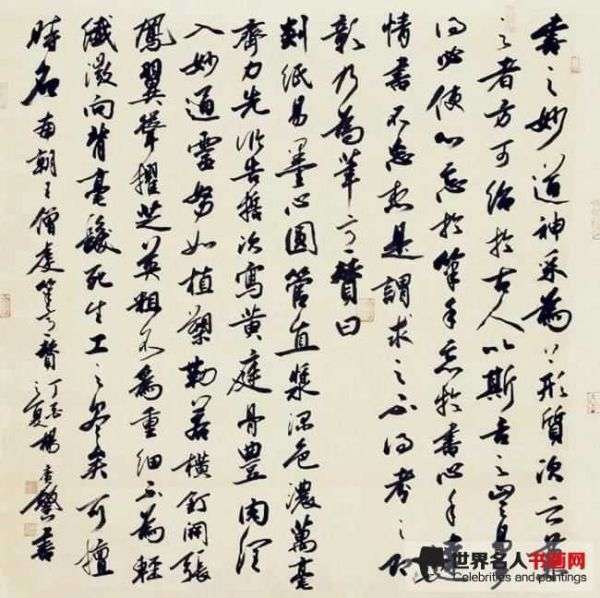 書之妙道神采為上形質次之兼
之者方可紹於古人以斯言之豈易多
得必使心忘於筆手忘於書心手達
情書不忘想是謂求之不得考之即
彰乃為筆意贊曰
剡紙易墨心圓管直漿深色濃萬毫
齊力先臨告誓次寫黃庭骨豐肉潤
入妙通靈努如植槊勒若橫釘開張
鳳翼聳擢芝英粗不為重細不為輕
纖微向背毫髮死生工之盡矣可擅
時名 南朝王僧虔筆意贊 丁亥之夏楊書
世界名人书画网
Celebrities and paintings